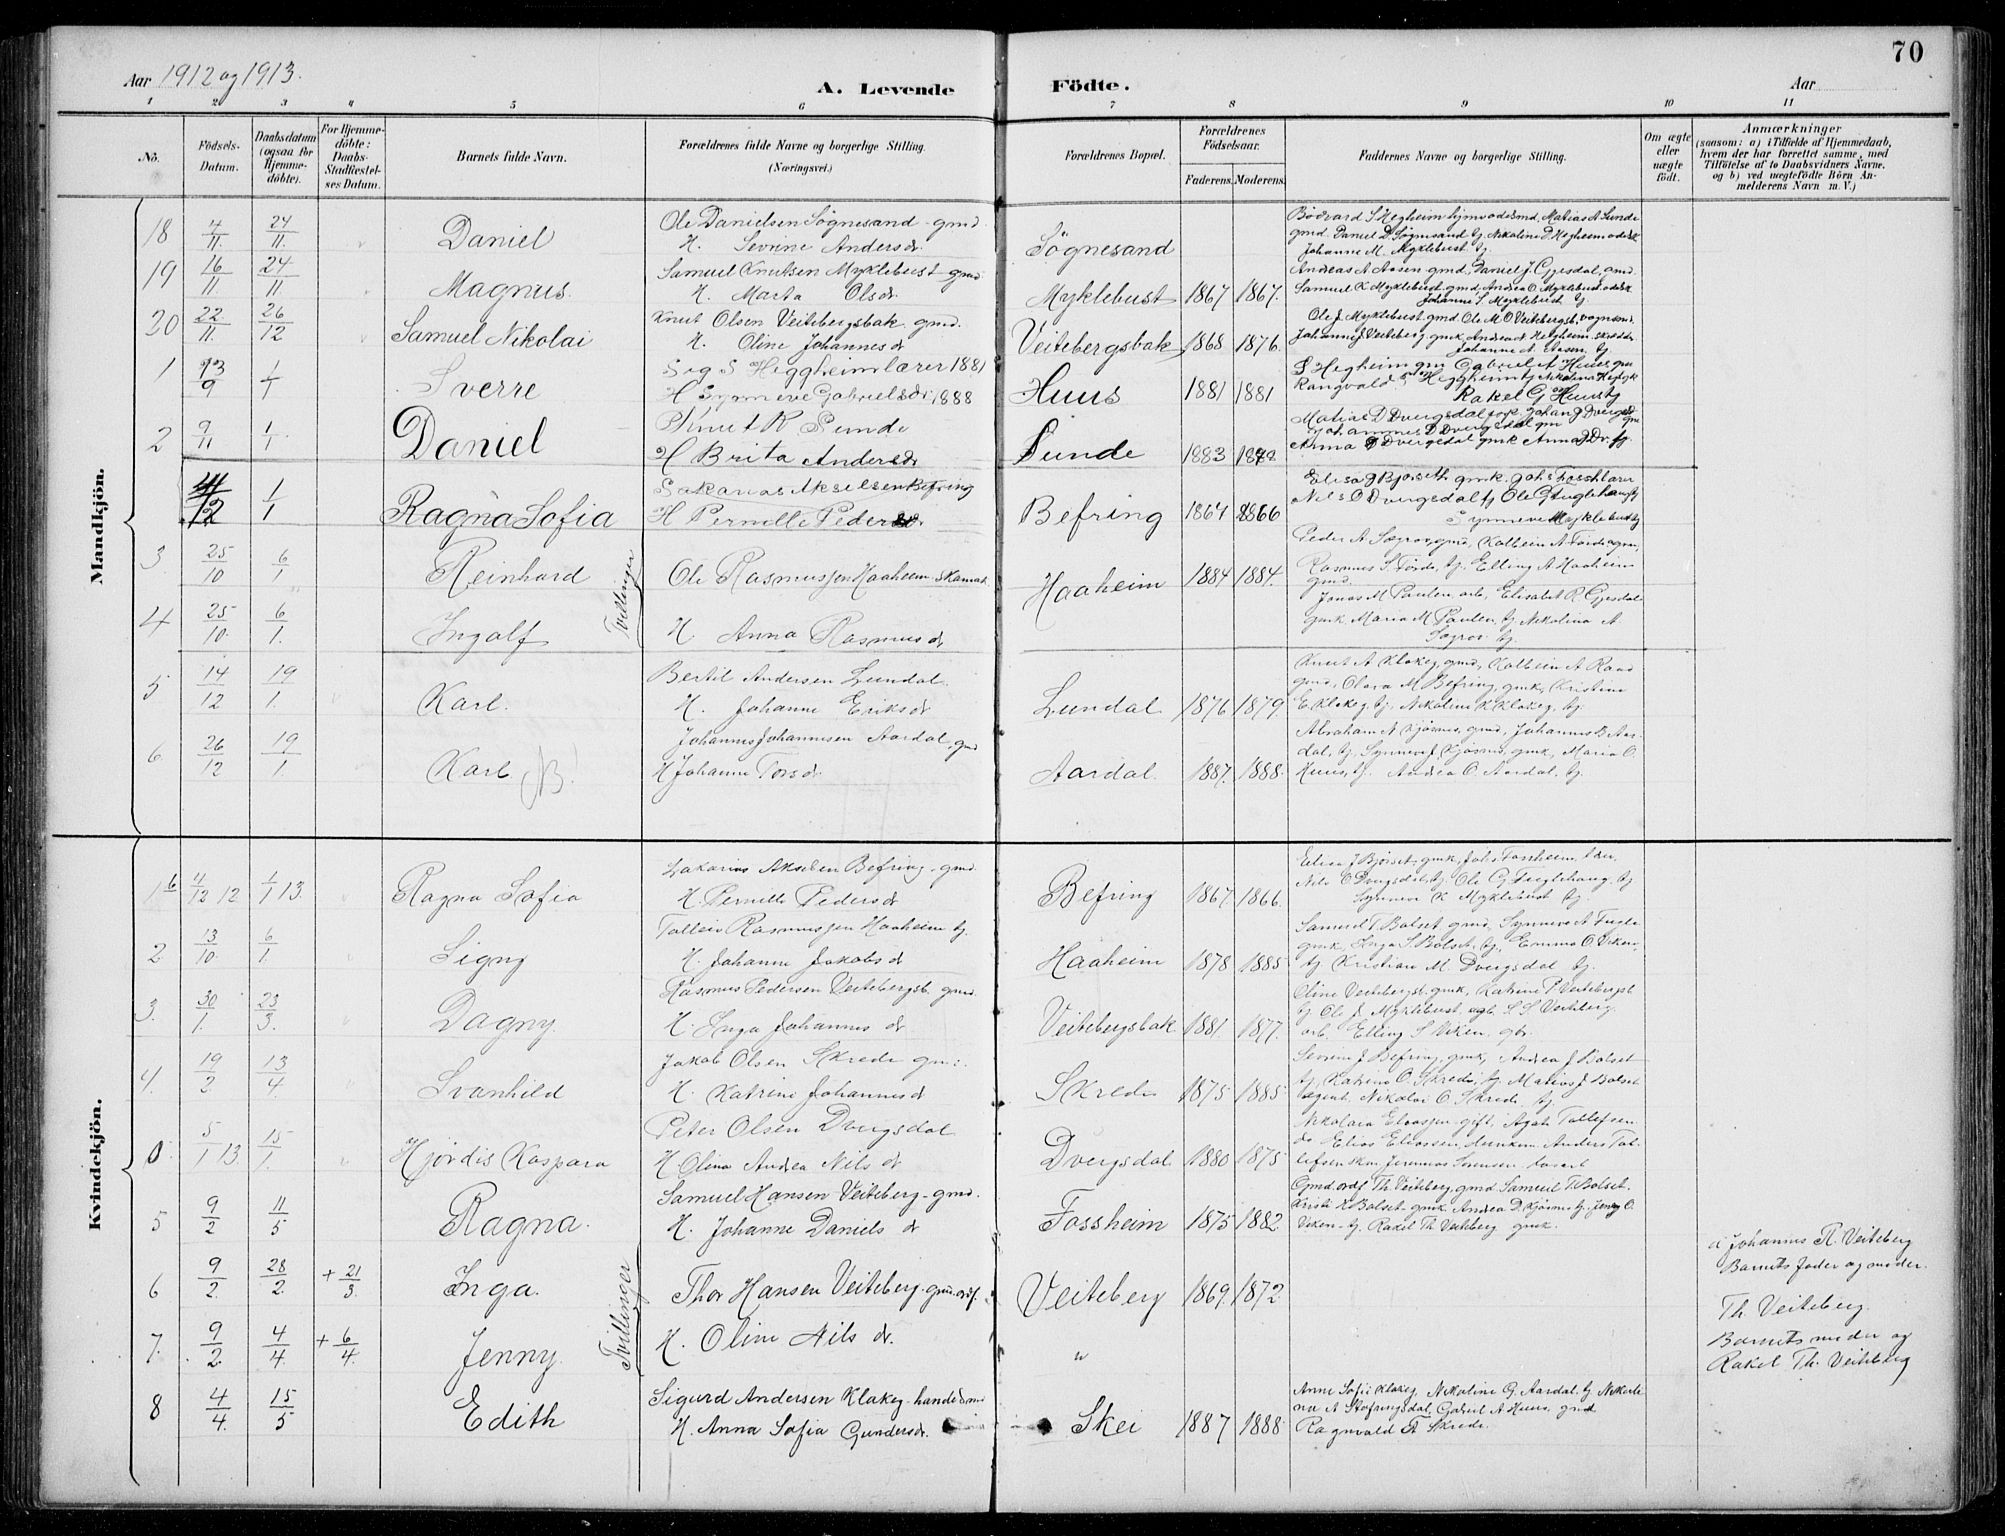 70
Aar 1912 og 1913.
A. Levende Födte.
Aar
1 2 3 4 5 6 7 8 9 10 11
No.
Födsels-Datum.
Daabsdatum (ogsaa för Hjemmedöbte).
For Hjemmedöbte: Daabs-Stadfæstelses Datum.
Barnets fulde Navn.
Forældrenes fulde Navne og borgerlige Stilling. (Næringsvei.)
Forældrenes Bopæl.
Forældrenes Födselsaar.
Faderens. Moderens.
Faddernes Navne og borgerlige Stilling.
Om ægte eller uægte födt.
Anmærkninger
(saasom: a) i Tilfælde af Hjemmedaab, hvem der har forrettet samme, med Tilföielse af to Daabsvidners Navne, og b) ved uægtefödte Börn Anmelderens Navn m. V.)
Mandkjön.
18 4/11 24/11 Daniel Ole Danielsen Søgnesand gmd
H. Severine Andersdr Søgnesand
gmd Daniel D. Søgnesand tj. Nikoline D. Hegheim
Johanne M. Myklebust tj.
19 16/11 24/11 Magnus Samuel Knutsen Myklebust gmd
H. Marta Olsdr Myklebust 1867 1867.
Andreas A Aasen gmd, Daniel J. Gjesdal, gmd
Samuel K Myklebust gmd, Andrea O Myklebust
Johanne S Myklebust tj
20 22/11 26/12 Samuel Nikolai Knut Olsen Veitebergsbak gmd.
H. Oline Johannesdr Veitebergsbak 1868 1876.
Ole J. Myklebust gmd Ole M O Veitebergsb.
Johanne J. Veiteberg gmk, Andrea N Hegheim
Johanne A. Aasen tj
1 23/9 1/1 Sverre Sig S Heggheim lærer 1881
H Synneve Gabrielsdr 1888 Huus 1881 1881
S Hegheim gm Gabriel A Huus gm
Rangvald S Heggheim tj Nikolina
Rakel G Huus tj
2 9/11 1/1 Daniel Knut R Sunde
H Brita Andersdr Sunde 1883
Anna D Dvergsdal gmk Anna
4/12 1/1 Ragna Sofia Sakarias Akselsen Befring
H Pernille Pedersdr Befring 1867 1866
Elisa J Bjørset gmk. Joh. S Fossh lærer
Nils O Dvergsdal tj Ole G Fuglehaug tj
Synneve Myklebust tj
3 25/10 6/1 Reinhard Tvillinger Ole Rasmussen Haaheim Haaheim 1884 1884.
Peder A Søgror, gmd, Kolbein A Førde gm,
Rasmus S Førde, tj. Elling A Haaheim
gmd.
4 25/10. 6/1. Ingolf H. Anna Rasmusdr
Jonas M Paulen, arb, Elisabet R Gjesdal
gmk, Maria M Paulen, tj Nikolina A
Søgror tj.
5 14/12 19/1. Karl. Bertil Andersen Lundal.
H. Johanne Eriksdr Lundal 1876 1879
Knut A Klakeg, gmd, Kolbein A Raad
gmd, Olara M Befring, gmk, Kristine
E. Klakeg, tj. Nikoline K Klakeg, tj.
6 26/12 19/1. Karl Johannes Johannesen Aardal, gmd
H Johanne Torsdr Aardal. 1887. 1888.
Abraham N Kjøsnes, gmd, Johannes B Aar-
dal, tj. Synneve J Kjøsnes, gmk, Maria O.
Huus, tj. Andrea O. Aardal, tj.
Kvindekjön.
1 4/12 12 1/1 13. Ragna Sofia Zakarias Akselsen Befring, gmd.
H. Pernille Pedersdr Befring 1867. 1866.
Elisa J Bjørset, gmk, Johs Fossheim, lær,
Nils O Dvergsdal, tj. Ole G Fuglehaug, tj
Synneve K Myklebust tj.
2 13/10. 6/1. Signy Tolleiv Rasmussen Haaheim tj.
H. Johanne Jakobsdr Haaheim 1878 1885
Samuel T. Bolset gmd, Synneve A Fugle
gmk, Inga S Bolset, tj, Emma O. Viken,
tj Kristian M. Dvergsdal tj.
3. 30/1. 23/3. Dagny. Rasmus Pedersen Veitebergsb. gmd.
H. Inga Johannesdr Veitebergsbak 1881. 1877.
Oline Veitebergsb. gmk, Katrine P. Veitebergsb
tj Ole J. Myklebust, S. S Veiteberg
arb Elling S. Viken, gbr.
4. 19/2 13/4. Svanhild Jakob Olsen Skrede gm:
H. Katrine Johannesdr Skrede 1875 1885
Severin J Befring, gmk, Andrea J Bolset
tj, Katrine O. Skrede, tj. Matias J Bolset
agent, Nikolai O. Skrede tj
0. 5/1 13. 15/1. Hjørdis Kaspara Peter Olsen Dvergsdal
H Olina Andrea Nilsdr Dvergsdal 1880 1875
Nikolara Eliassen gift, Agate Tollefsen
do Elias Eliassen, Anders Tol-
lefsen Jeremias Sørensen
5 9/2 11/5 Ragna. Samuel Hansen Veiteberg. gmd.
H. Johanne Danielsdr Fossheim 1875 1882
Gmd. ordf Th. Veiteberg, gmd Samuel T. Bolset.
Kristi K Bolset gmk Andrea D. Kjøsnes tj. Jenny O.
Viken tj. Rakel Th. Veiteberg gmk.
6 9/2. 28/2. + 21/3. Inga. Tvillinger Thor Hansen Veiteberg. gmd. ordf. Veiteberg 1869. 1872
Johannes R. Veiteberg
Barnets fader og moder.
7. 9/2. 4/4 + 6/4. Jenny. H. Oline Nilsdr. "
Th. Veiteberg.
Barnets moder og
Rakel Th. Veiteberg
8 4/4. 15/5 Edith Sigurd Andersen Klakeg. handelsm
H. Anna Sofia Gundersdr. Skei 1887 1888
Anne Sofie Klakeg, Nikoline G. Aardal. tj Nikoli-
na A Støfringsdal, Gabriel A Huus, gmd
Ragnvald A Skrede.